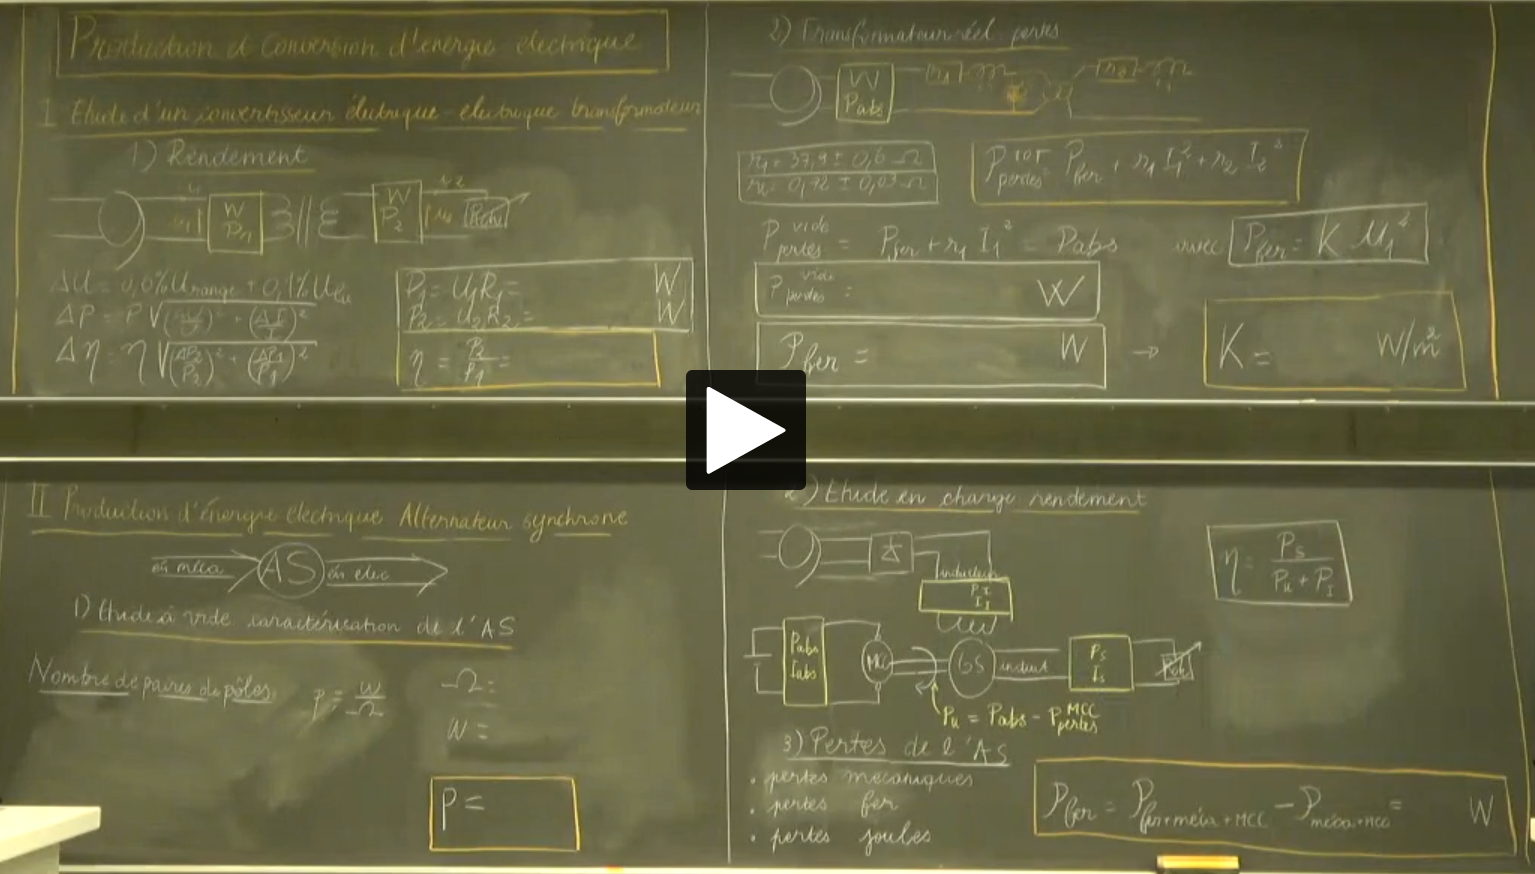 Production et Conversion d'énergie électrique
I Etude d'un convertisseur électrique-électrique transformateur
1) Rendement
W P1
W P2
Rch
ΔU = 0,0%Urange + 0,1%
ΔP = P√((ΔU/U)² + (ΔI/I)²)
Δη = η√((ΔP2/P2)² + (ΔP1/P1)²)
P1 = U1R1 = W
P2 = U2R2 = W
η = P2/P1 =
2) Transformateur réel pertes
W Pabs
r1
r2
r1 = 37,9 ± 0,6 Ω
r2 = 0,92 ± 0,03 Ω
P tot pertes = Pfer + r1 I1² + r2 I2²
P vide pertes = Pfer + r1 I1² = Pabs avec Pfer = K U1²
P vide pertes = W
Pfer = W → K = W/m²
II Production d'énergie électrique Alternateur synchrone
en méca AS en elec
1) Etude à vide caractérisation de l'AS
Nombre de paires de pôles: p = W/Ω
Ω =
W =
P =
2) Etude en charge rendement
inducteur
PI
II
η = Ps/(Pu + PI)
Pabs Iabs MCC GS induit Ps Is Rch
Pu = Pabs - P MCC pertes
3) Pertes de l'AS
• pertes mécaniques
• pertes fer
• pertes joules
Pfer = Pfer+méca+MCC - Pméca+MCC = W